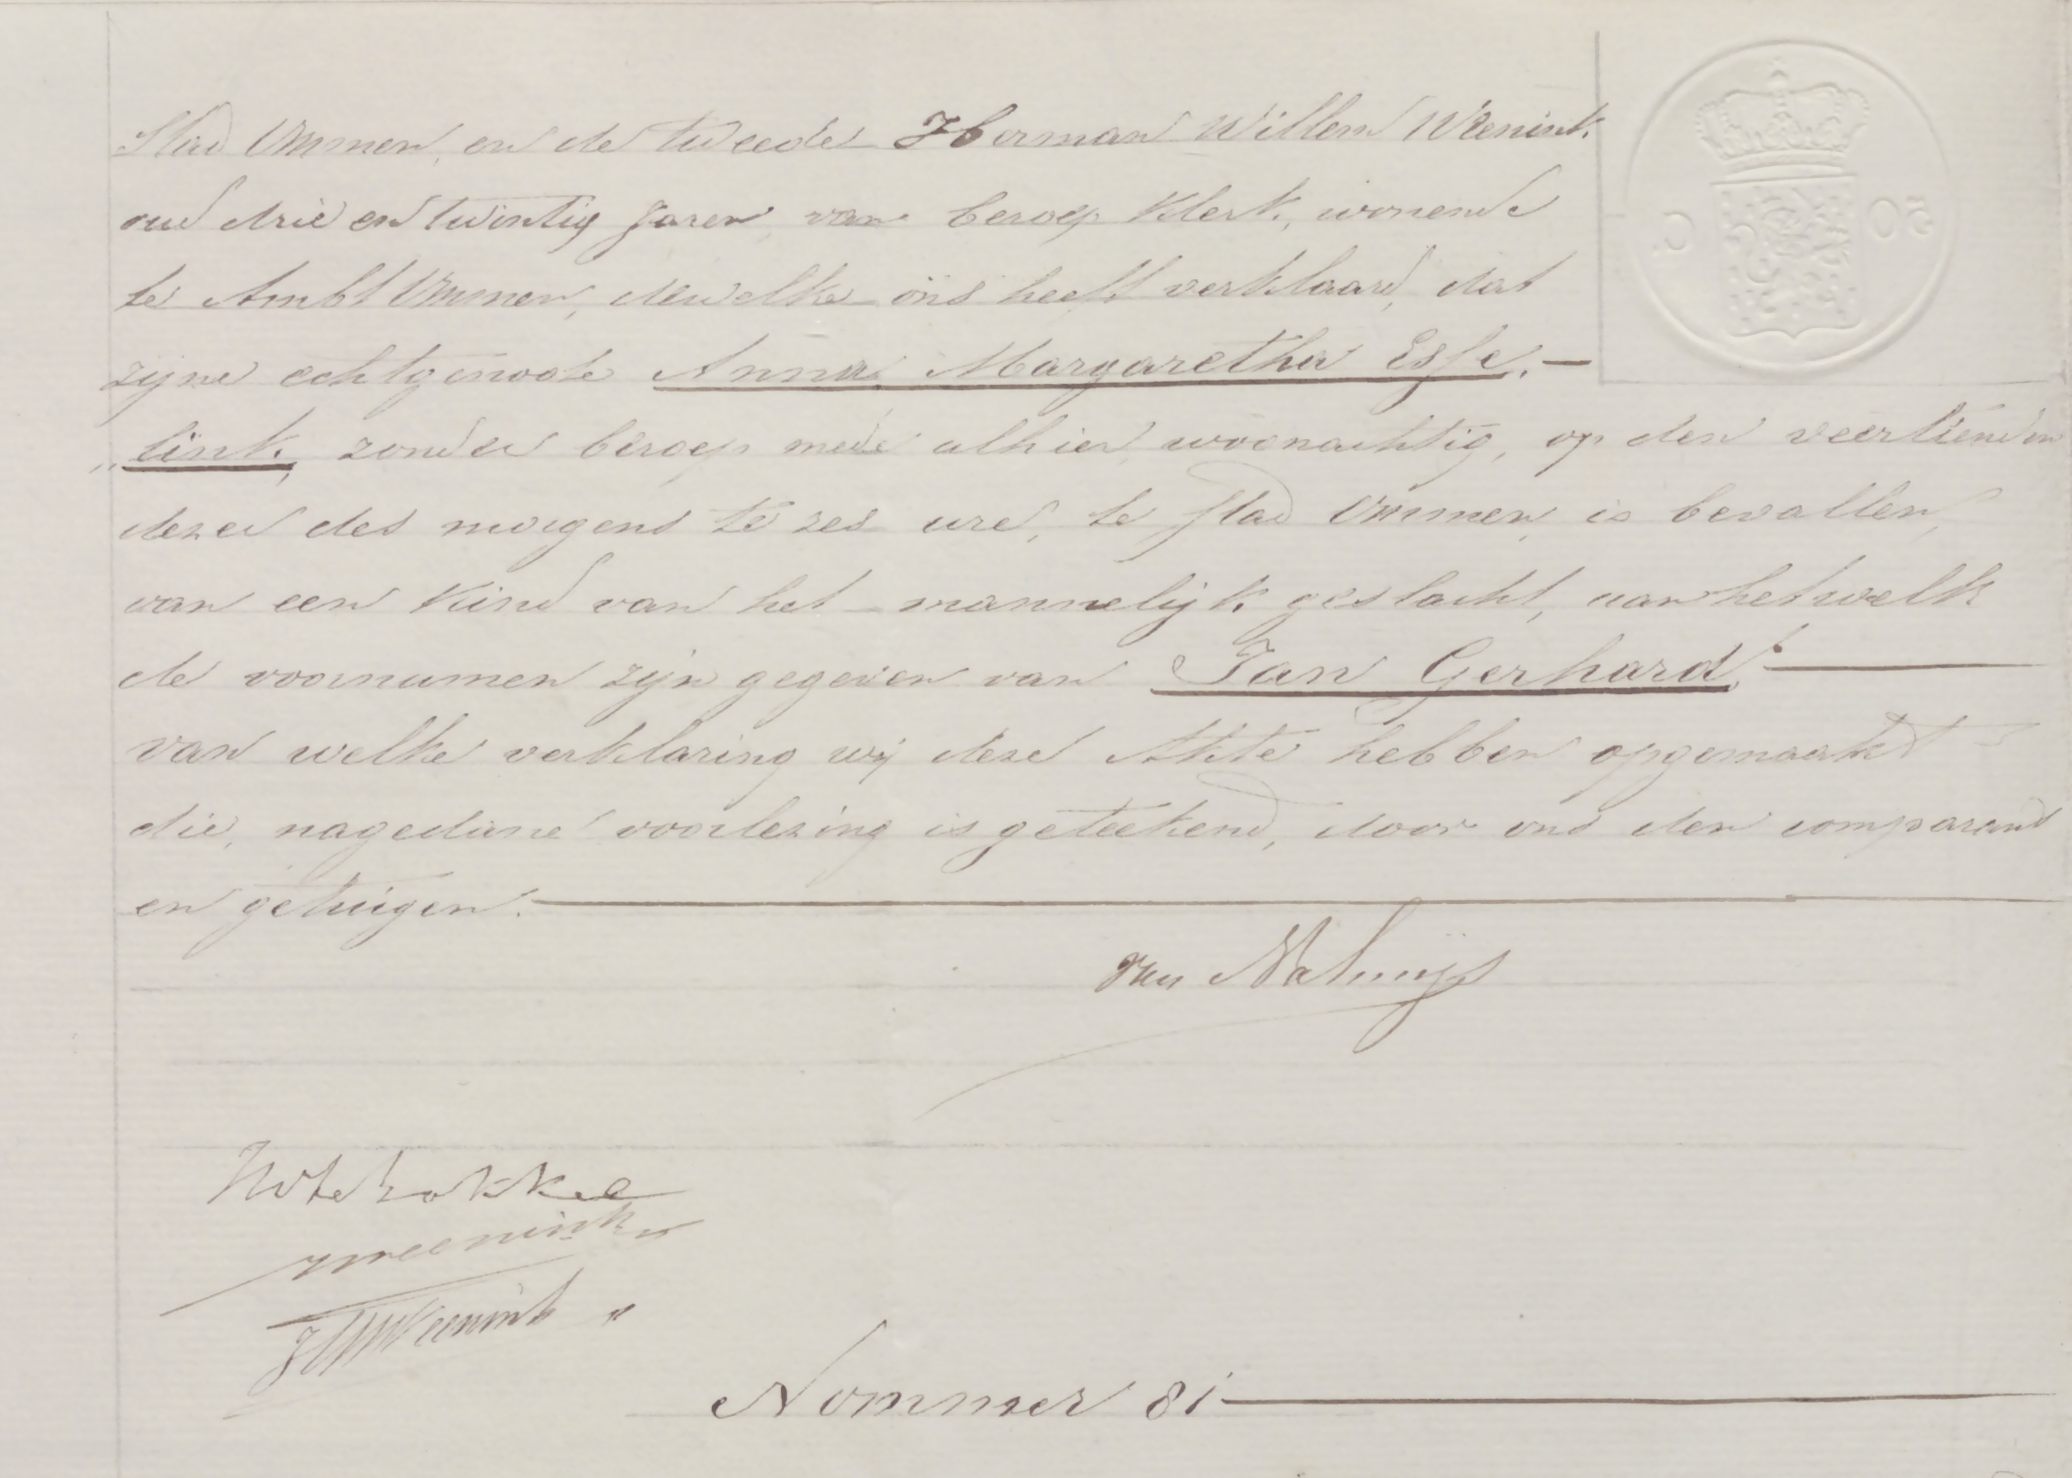 Stad Ommen, en de tweede Herman Willem Weenink
oud drie en twintig Jaren, van beroep Klerk, wonende
te Ambt Ommen, dewelke ons heeft verklaard, dat
zijne echtgenoote Anna Margaretha Esse,—
„link, zonder beroep mede alhier woonachtig, op den veertienden
dezer des morgens te zes ure, te Stad Ommen, is bevallen,
van een Kind van het mannelijk geslacht, aan hetwelk
de voornamen zijn gegeven van Jan Gerhard,—
van welke verklaring wij deze Akte hebben opgemaakt
die, na gedane voorlezing is geteekend, door ons den comparant
en getuigen.—
50 C.
van
Weenink
HW Weenink
Nommer 81—